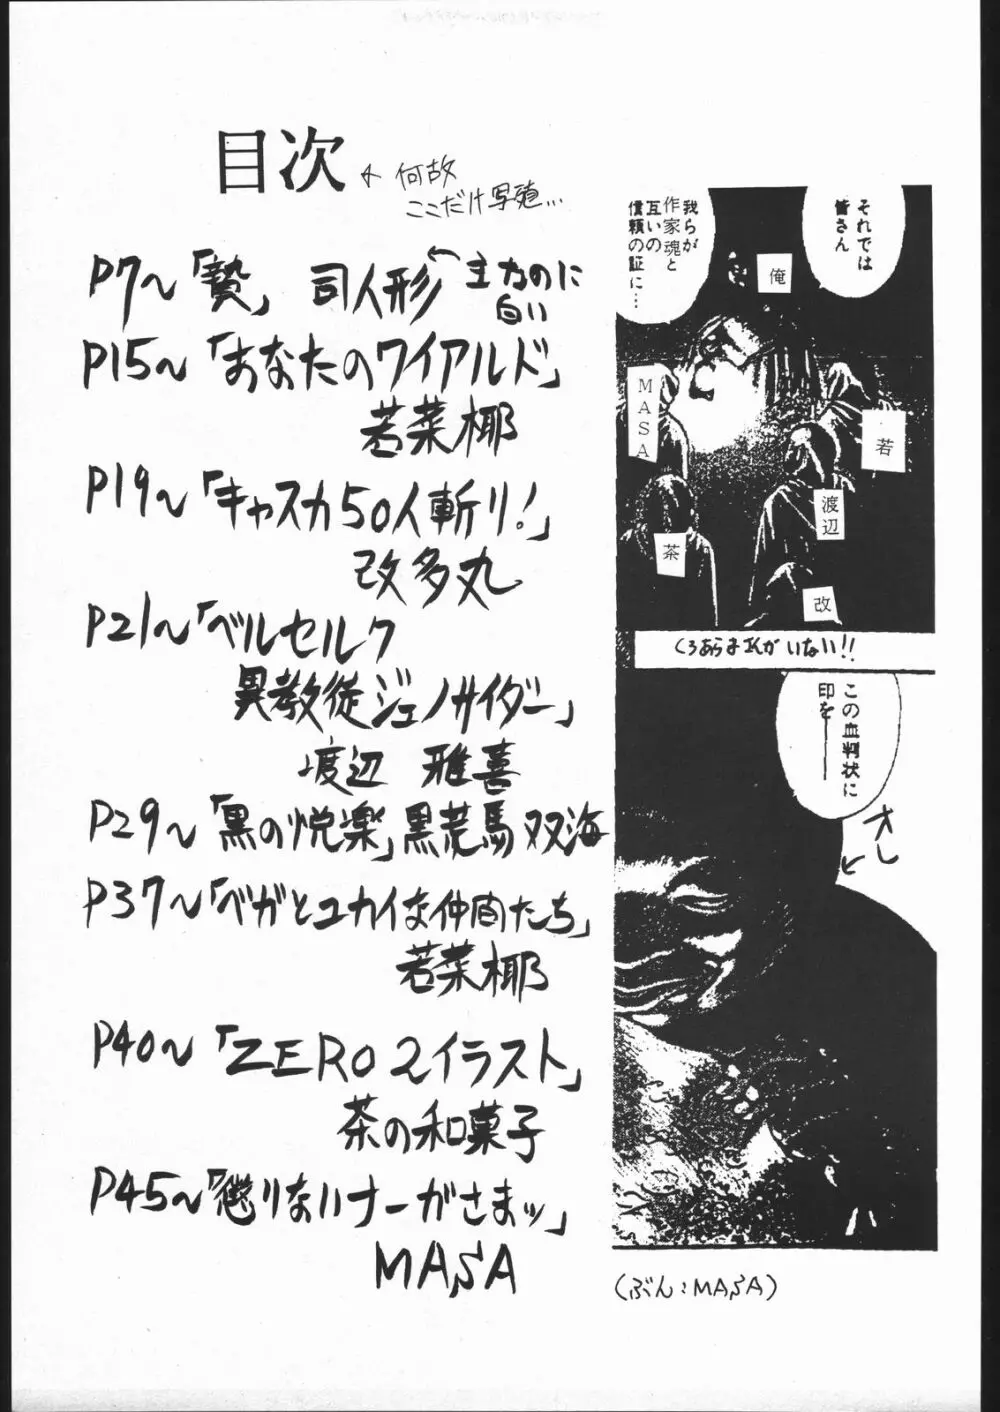 目次
← 何故
ここだけ写植…
P7〜「贄」 司人形 ← 主なのに
白い
P15〜「あなたのワイアルド」
若菜椰
P19〜「キャスカ50人斬り!」
改多丸
P21〜「ベルセルク
異教徒ジェノサイダー」
渡辺 雅喜
P29〜「黒の悦楽」黒荒馬双海
P37〜「ベガとユカイな仲間たち」
若菜椰
P40〜「ZERO2イラスト」
茶の和菓子
P45〜「懲りないナーがさまッ」
MASA
それでは
皆さん
我らが
作家魂と
互いの
信頼の証に…
俺
MASA
若
渡辺
茶
改
くろあらまエんがいない!!
この血判状に
印を――
オレ
(ぶん:MASA)